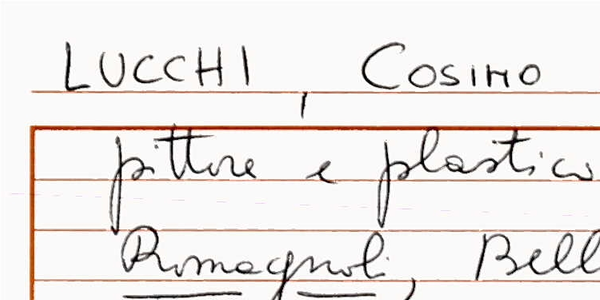 LUCCHI, COSIMO
pittore e plastico
Romagnoli, Bell